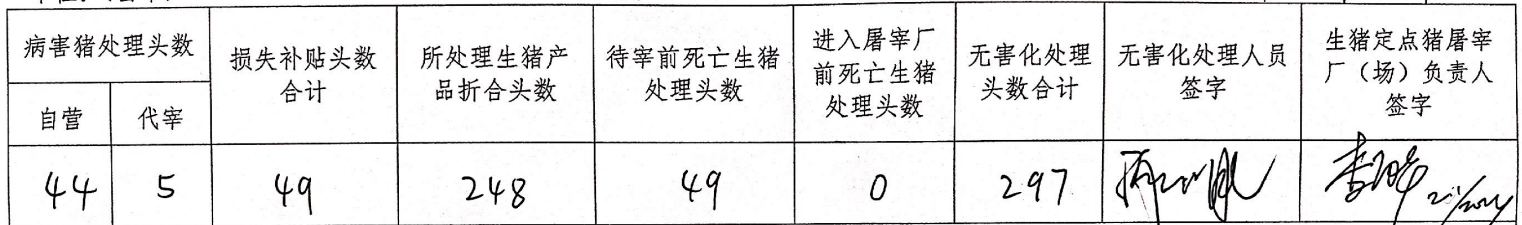 病害猪处理头数
损失补贴头数
合计
所处理生猪产
品折合头数
待宰前死亡生猪
处理头数
进入屠宰厂
前死亡生猪
处理头数
无害化处理
头数合计
无害化处理人员
签字
生猪定点猪屠宰
厂（场）负责人
签字
自营
代宰
44
5
49
248
49
0
297